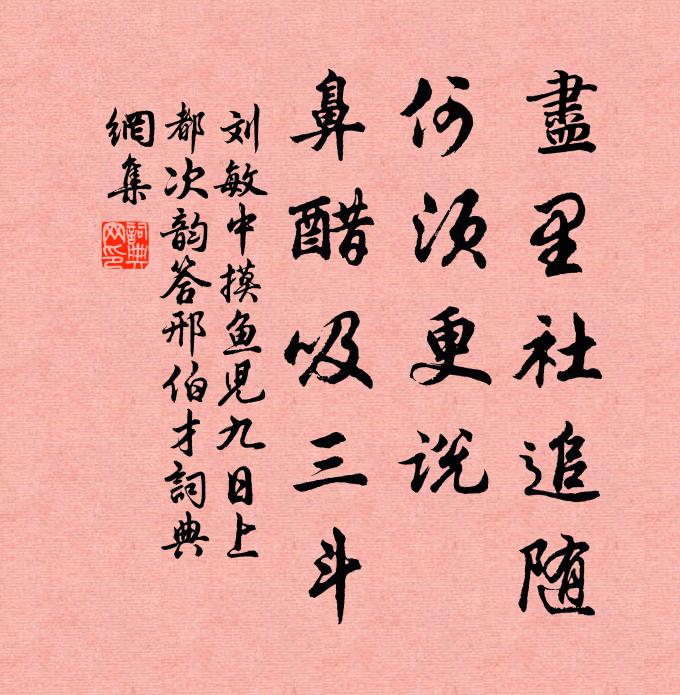 盡里社追随
何须更说
鼻醋吸三斗
刘敏中摸鱼児九日上
都次韵答邢伯才詞典
網集
詞典
网印